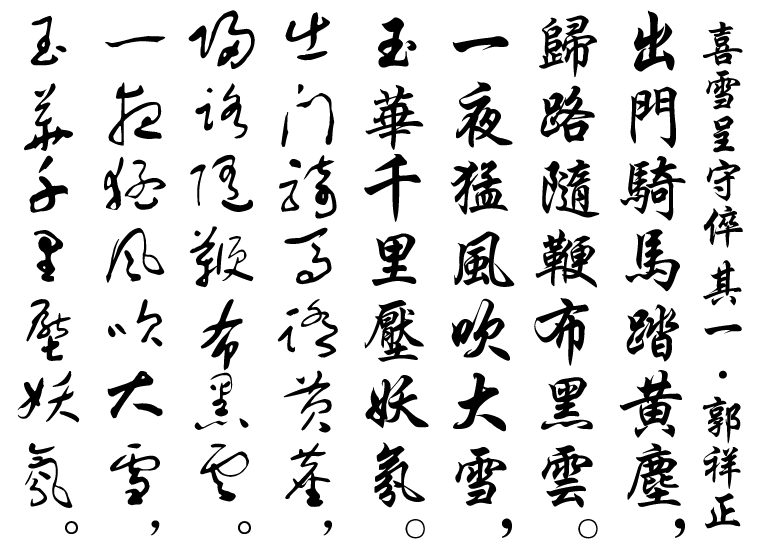 喜雪呈守倅其一·郭祥正
出門騎馬踏黃塵，
歸路隨鞭布黑雲。
一夜猛風吹大雪，
玉華千里壓妖氛。
出門騎馬踏黃塵，
歸路隨鞭布黑雲。
一夜猛風吹大雪，
玉華千里壓妖氛。